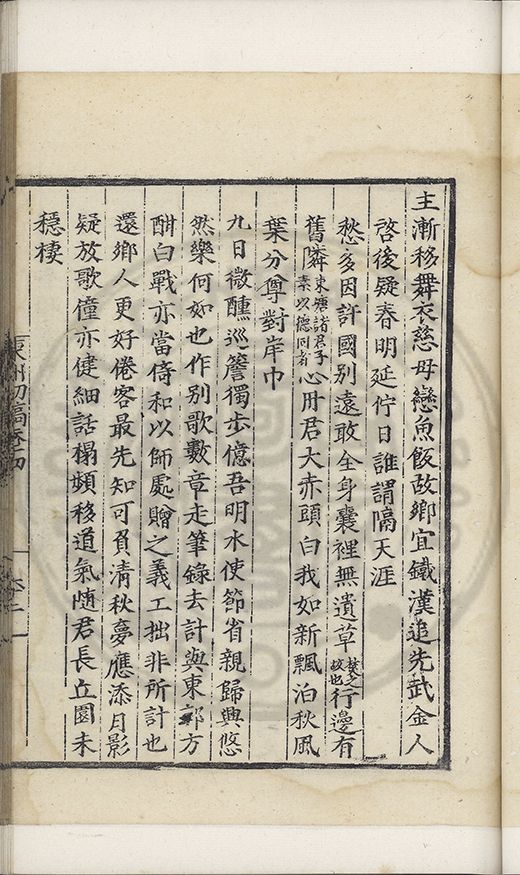 主漸移舞衣慈母戀魚飯故鄉宜鐵漢追先武金人
啓後疑春明延佇日誰謂隔天涯
愁多因許國別遠敢全身囊裡無遺草焚之故也行邊有
舊隣東塘諸君子素以德問者心肝君大赤頭白我如新飄泊秋風
葉分尊對岸巾
九日微醺巡簷獨步億吾明水使節省親歸興悠
然樂何如也作別歌數章走筆錄去計與東郭方
酣白戰亦當倚和以師處贈之義工拙非所計也
還鄉人更好倦客最先知可負清秋夢應添月影
疑放歌僮亦健細話榻頻移道氣随君長丘園未
穩棲
東洲初稿卷
卷十二